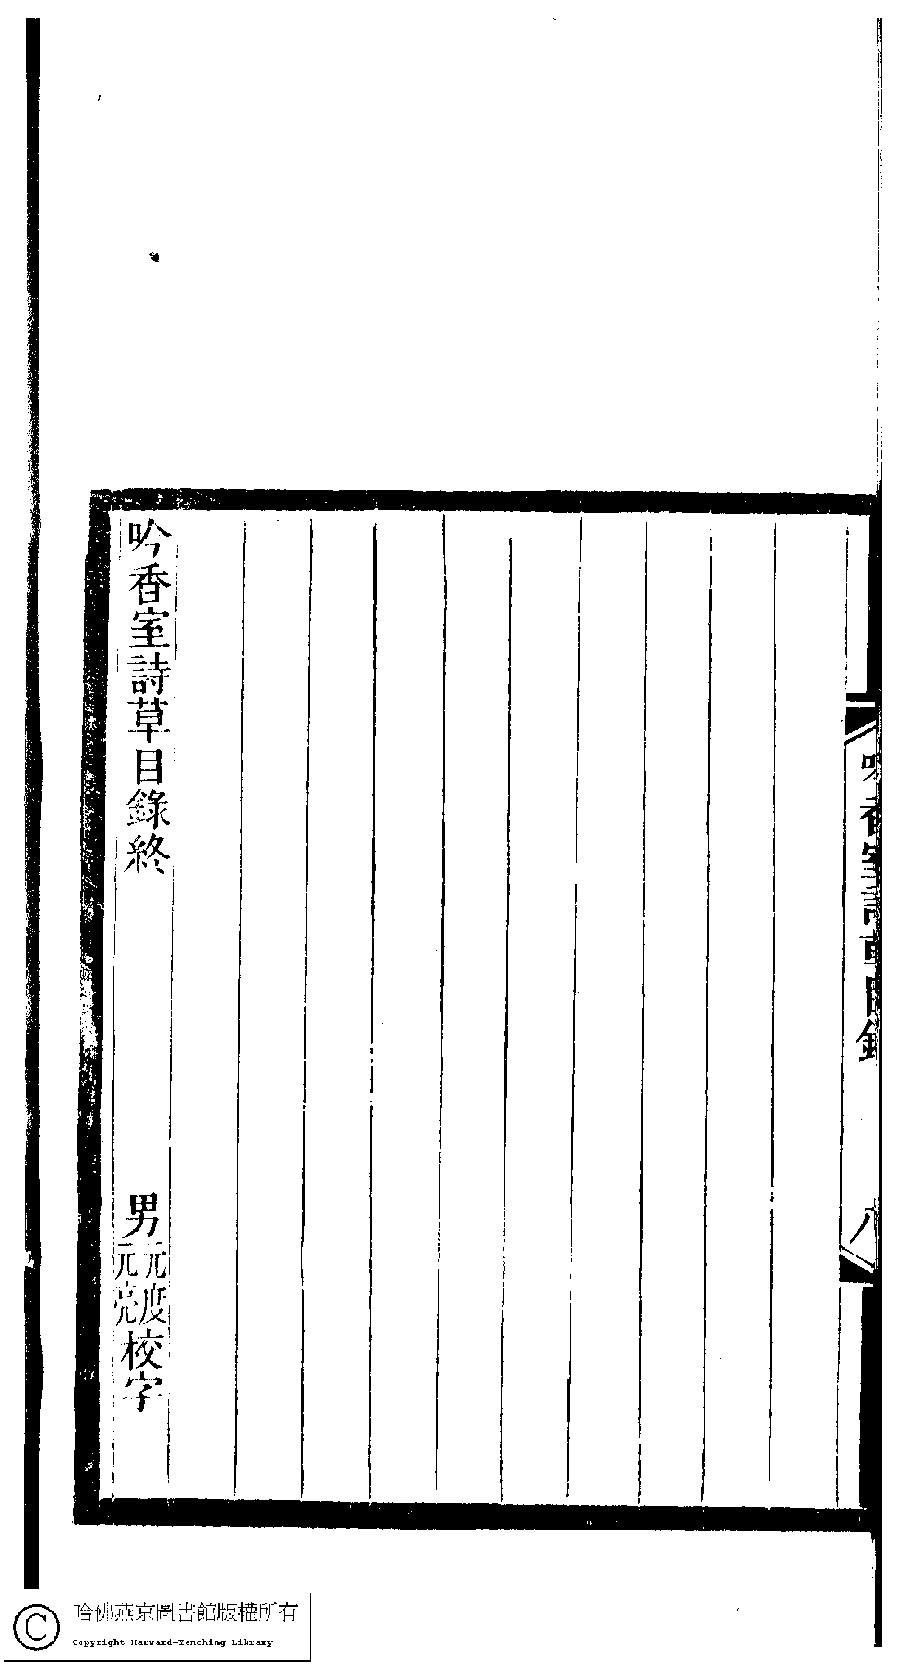 吟香室詩草目錄
八
吟香室詩草目錄終
男元度元亮校字
哈佛燕京圖書館版權所有
Copyright Harvard-Yenching Library